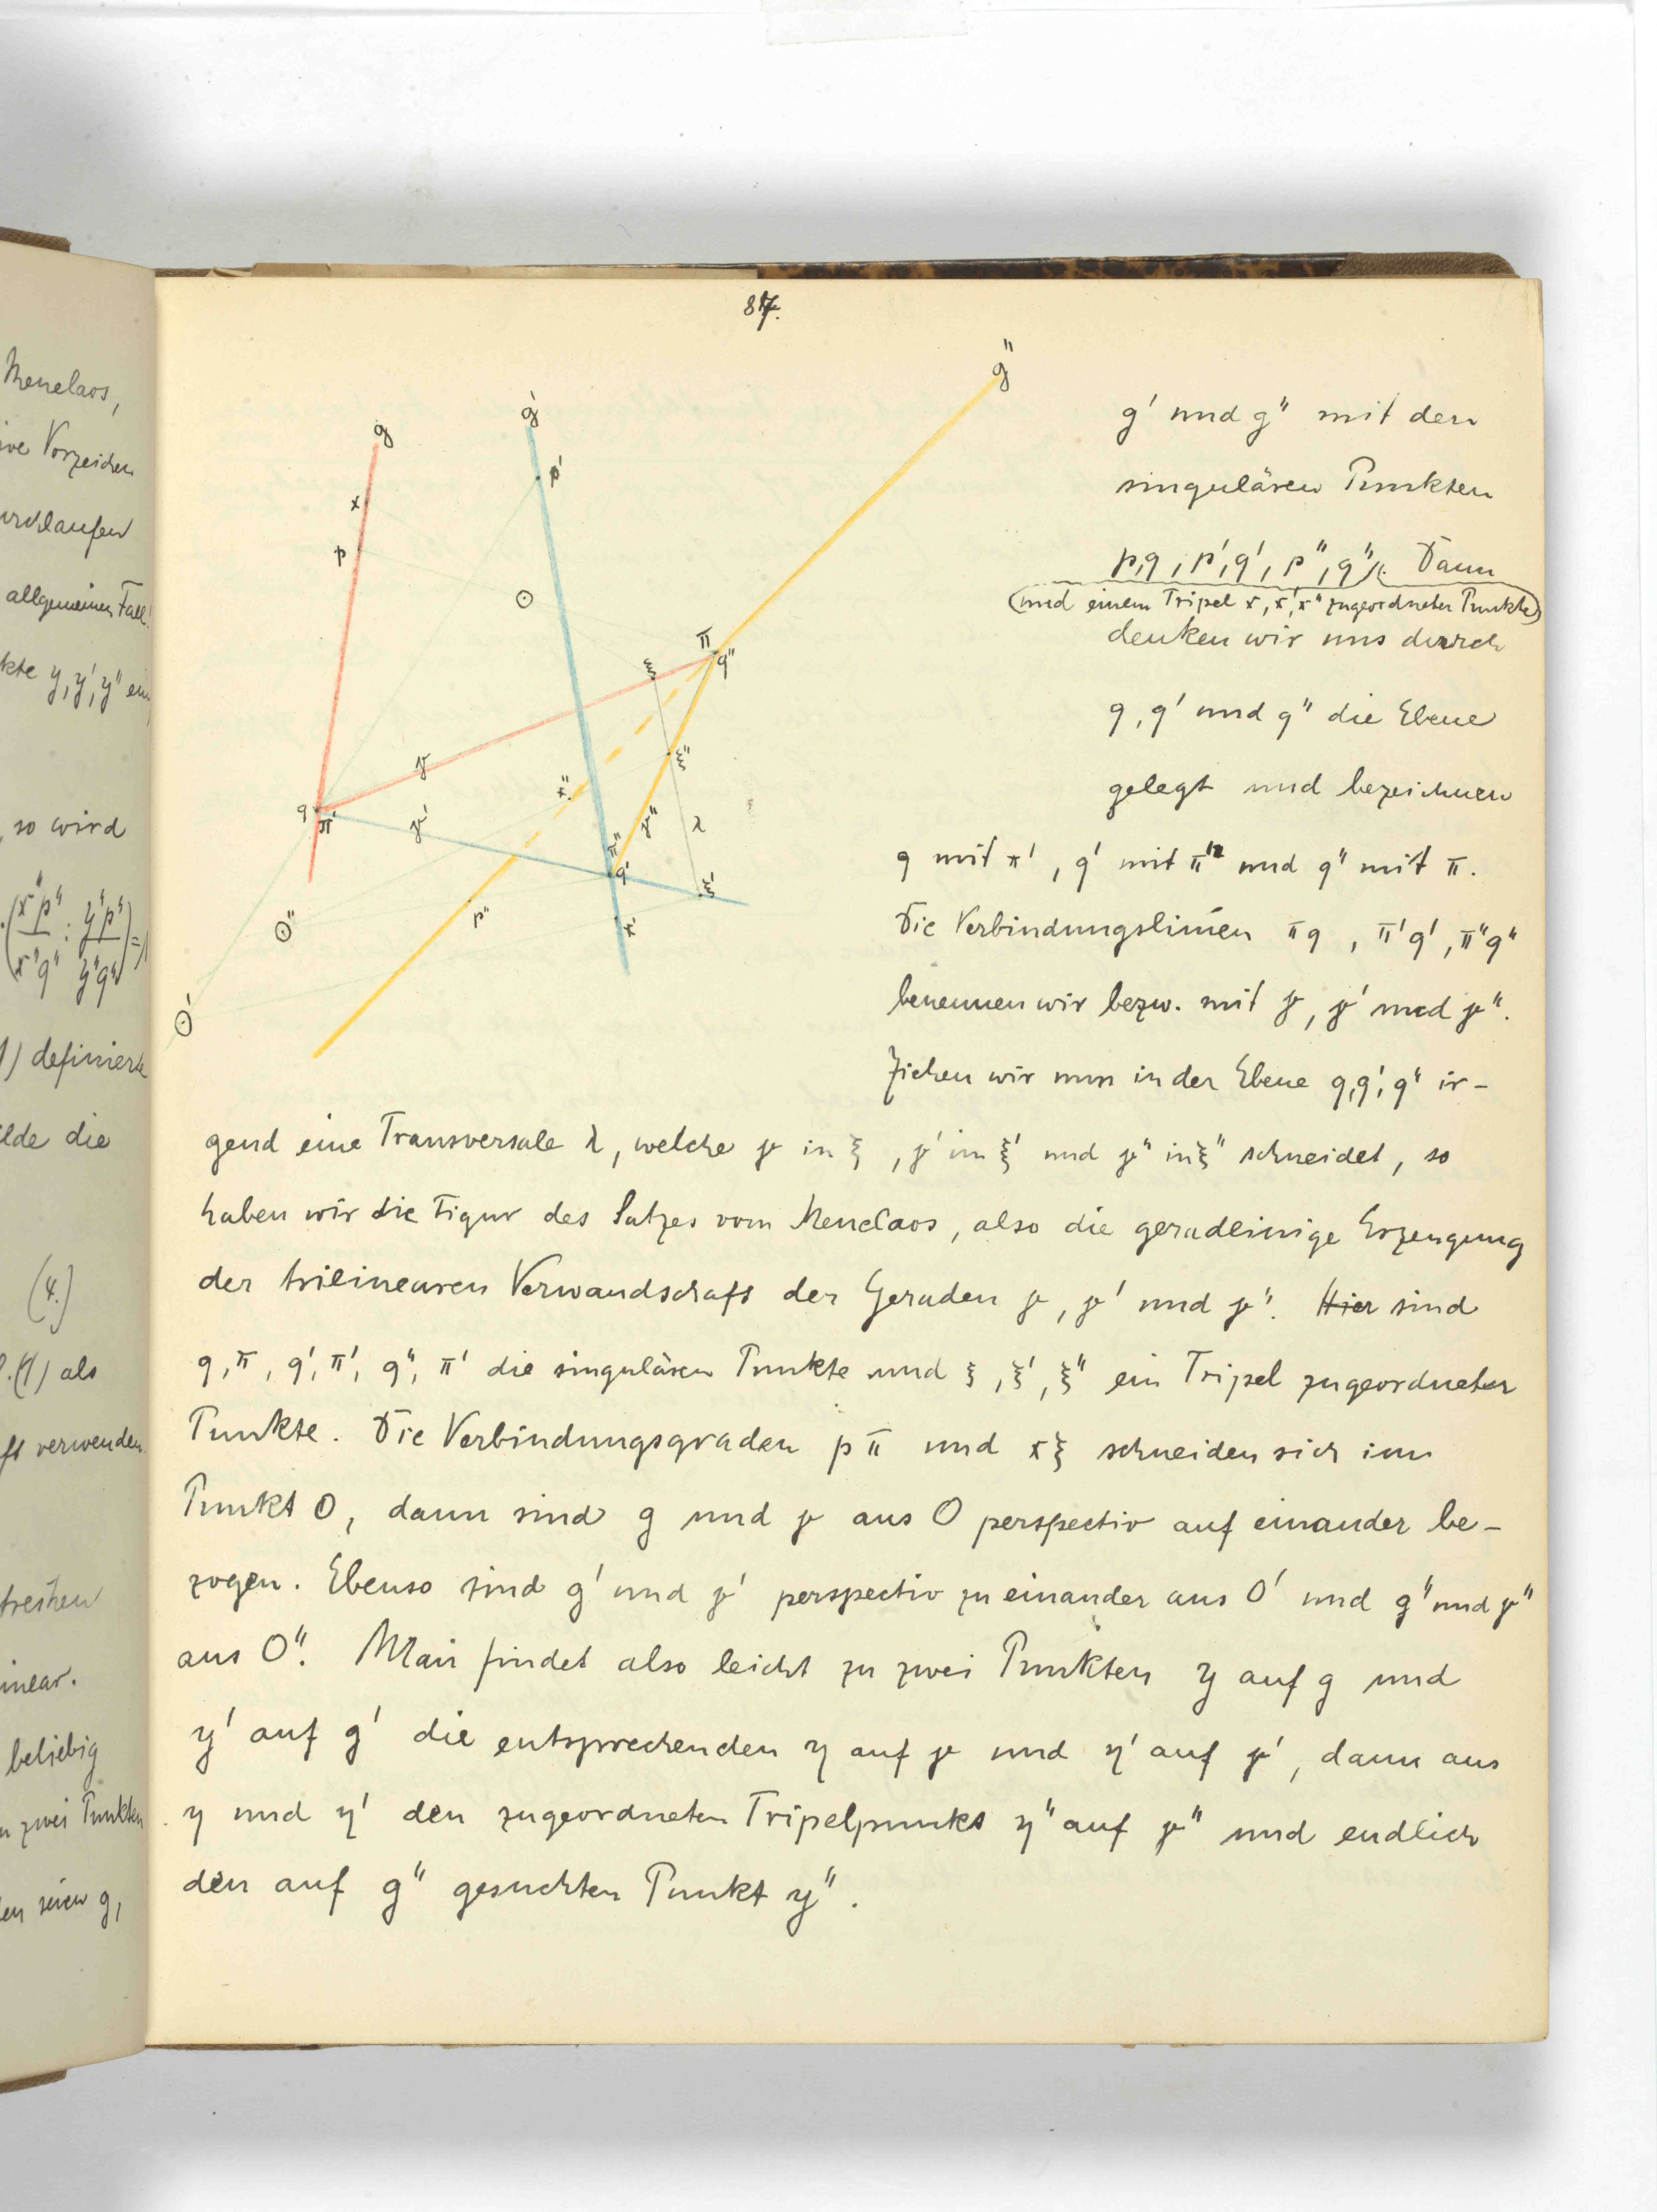 Menelaos,
Vorzeichen
allgemeinen Fall!
kte y, y', y" ein
, so wird
(x"p"/x"q" : y"p"/y"q") = 1
1) definierte
ilde die
(4.)
.(1) als
ft verwenden.
inear.
beliebig
n zwei Punkten
en seien g,
87.
g
g'
g"
x
p
p'
O
π
q"
ξ
γ
ξ"
x"
q
π'
γ'
π"
γ"
λ
q'
ξ'
p"
x'
O"
O'
g' und g" mit den
singulären Punkten
p,q, p',q', p",q". Dann
(und einem Tripel x, x', x" zugeordneter Punkte)
denken wir uns durch
q, q' und q" die Ebene
gelegt und bezeichnen
q mit π', q' mit π" und q" mit π.
Die Verbindungslinien πq, π'q', π"q"
benennen wir bezw. mit γ, γ' und γ".
Ziehen wir nun in der Ebene q,q',q" ir-
gend eine Transversale λ, welche γ in ξ, γ' in ξ' und γ" in ξ" schneidet, so
haben wir die Figur des Satzes vom Menelaos, also die geradlinige Erzeugung
der trilinearen Verwandschaft der Geraden γ, γ' und γ". Hier sind
q, π, q', π', q", π' die singulären Punkte und ξ, ξ', ξ" ein Tripel zugeordneter
Punkte. Die Verbindungsgraden pπ und xξ schneiden sich im
Punkt O, dann sind g und γ aus O perspectiv auf einander be-
zogen. Ebenso sind g' und γ' perspectiv zu einander aus O' und g" und γ"
aus O". Man findet also leicht zu zwei Punkten y auf g und
y' auf g' die entsprechenden η auf γ und η' auf γ', dann aus
η und η' den zugeordneten Tripelpunkt η" auf γ" und endlich
den auf g" gesuchten Punkt y".